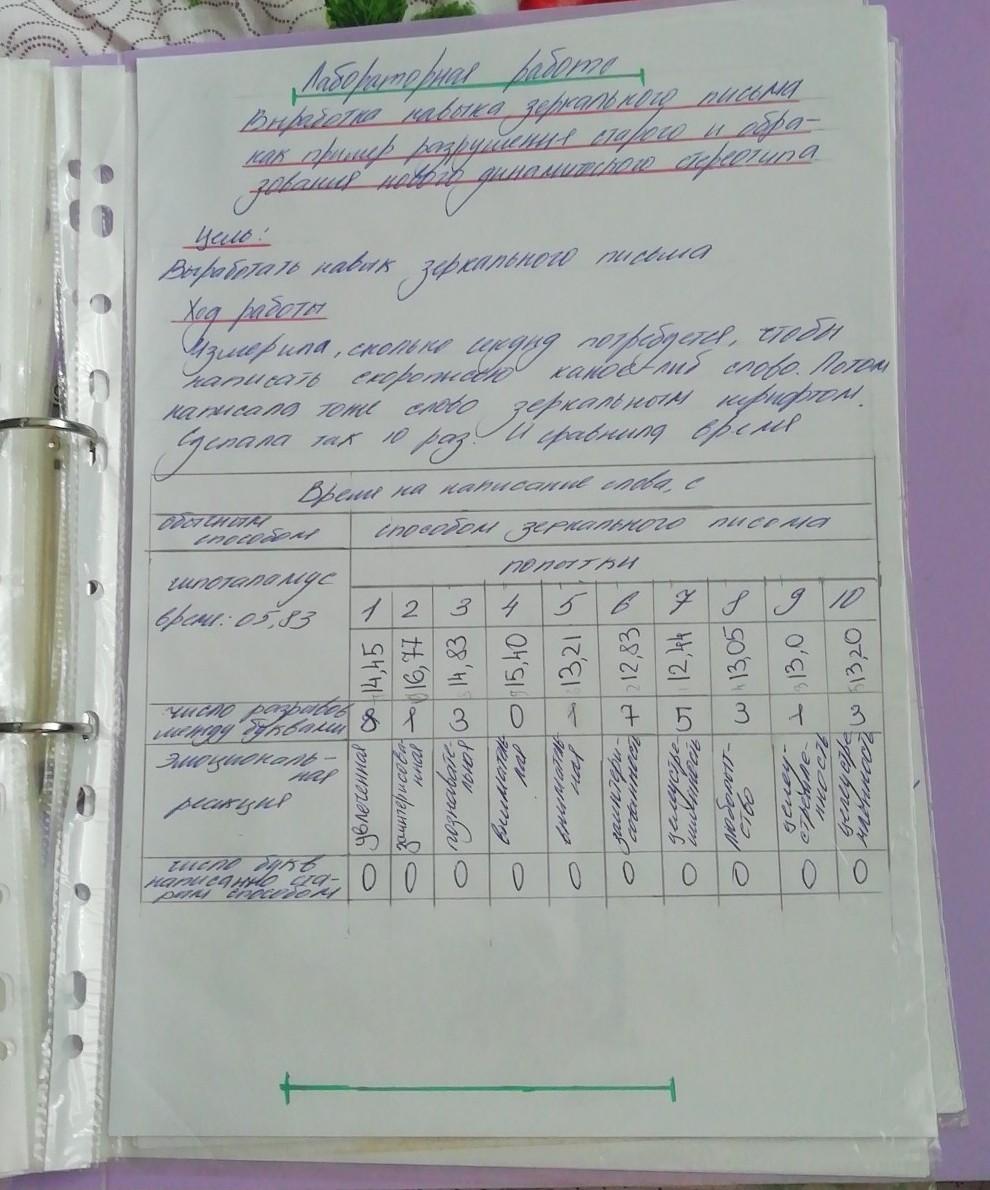 Лабораторная работа
Выработка навыка зеркального письма
как пример разрушения старого и обра-
зования нового динамического стереотипа
Цель:
Выработать навык зеркального письма
Ход работы
Измерила, сколько секунд потребуется, чтобы
написать скорописью какое-либо слово. Потом
написала тоже слово зеркальным шрифтом.
Сделала так 10 раз. И сравнила время
Время на написание слова, с
обычным способом
способом зеркального письма
гипоталамус
время: 05,83
попытки
1 2 3 4 5 6 7 8 9 10
14,45 16,77 14,83 15,40 13,21 12,83 12,44 13,05 13,0 13,20
число разрывов
между буквами
8 3 0 7 5 3 3
эмоциональ-
ная
реакция
увлеченная
заинтересова-
нная
познавате-
льная
вниматель-
ная
вниматель-
ная
любопыт-
ство
целеу-
стремле-
нность
число букв
написанно ста-
рым способом
0 0 0 0 0 0 0 0 0 0